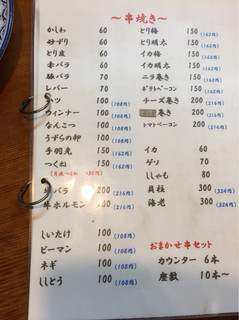 ～串焼き～
かしわ 60
砂ずり 60
とり皮 60
赤バラ 60
豚バラ 70
レバー 70
ハツ 100 (108円)
ウィンナー 100 (108円)
なんこつ 100 (108円)
うずらの卵 100 (108円)
手羽先 150 (162円)
つくね 150 (162円)
バラ 200 (216円)
牛ホルモン 200 (216円)
しいたけ 100 (108円)
ピーマン 100 (108円)
ネギ 100 (108円)
ししとう 100 (108円)
とり梅 150 (162円)
とり明太 150 (162円)
イカ梅 150 (162円)
イカ明太 150 (162円)
ニラ巻き 150 (162円)
ポテトベーコン 150 (162円)
チーズ巻き 200 (216円)
巻き 200 (216円)
トマトベーコン 200 (216円)
イカ 60
ゲソ 70
ししゃも 80
貝柱 300 (324円)
海老 300 (324円)
おまかせ串セット
カウンター 6本
座敷 10本～